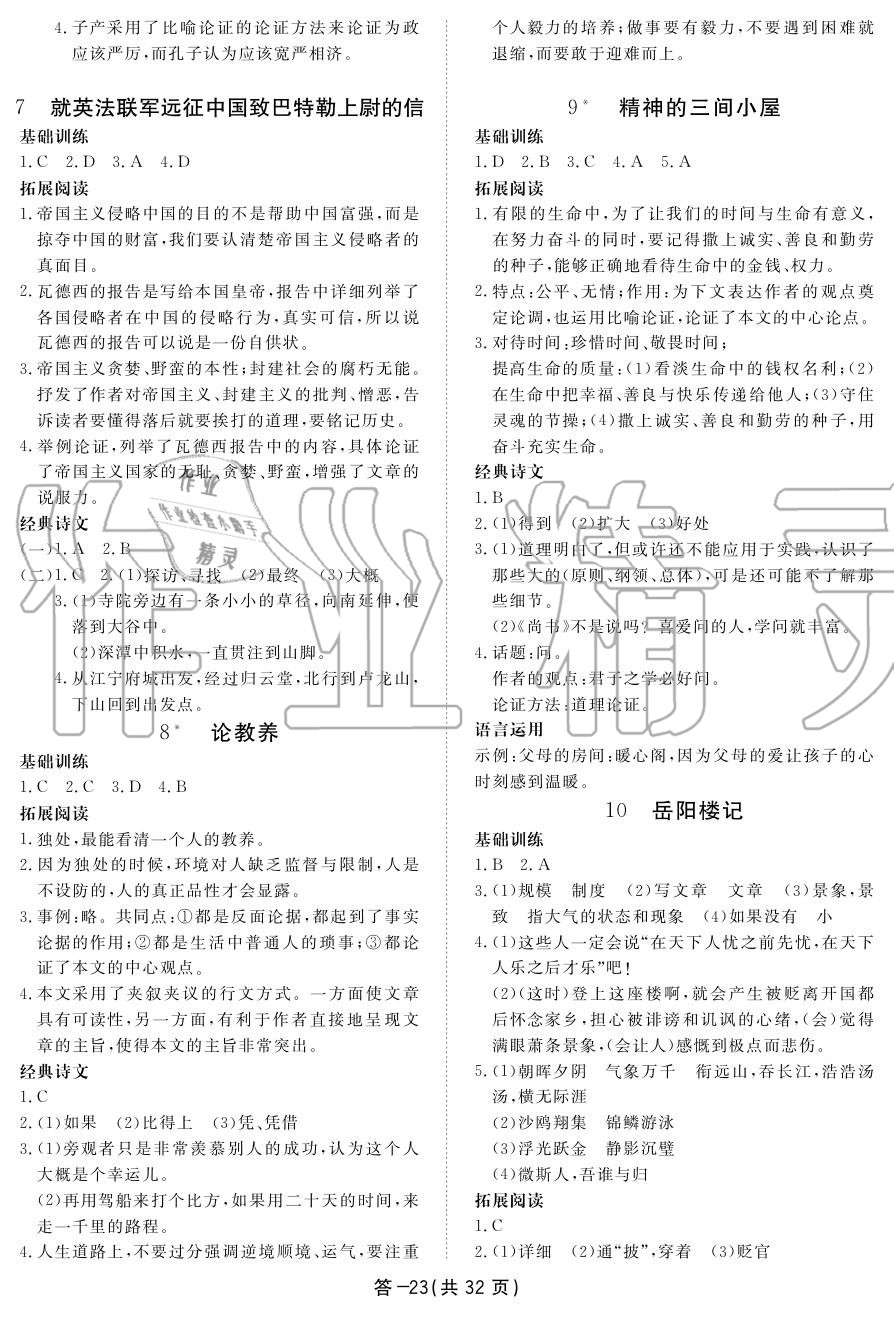 4.子产采用了比喻论证的论证方法来论证为政
应该严厉,而孔子认为应该宽严相济。
7 就英法联军远征中国致巴特勒上尉的信
基础训练
1.C 2.D 3.A 4.D
拓展阅读
1.帝国主义侵略中国的目的不是帮助中国富强,而是
掠夺中国的财富,我们要认清楚帝国主义侵略者的
真面目。
2.瓦德西的报告是写给本国皇帝,报告中详细列举了
各国侵略者在中国的侵略行为,真实可信,所以说
瓦德西的报告可以说是一份自供状。
3.帝国主义贪婪、野蛮的本性;封建社会的腐朽无能。
抒发了作者对帝国主义、封建主义的批判、憎恶,告
诉读者要懂得落后就要挨打的道理,要铭记历史。
4.举例论证,列举了瓦德西报告中的内容,具体论证
了帝国主义国家的无耻、贪婪、野蛮,增强了文章的
说服力。
经典诗文
(一)1.A 2.B
(二)1.C 2.(1)探访、寻找 (2)最终 (3)大概
3.(1)寺院旁边有一条小小的草径,向南延伸,便
落到大谷中。
(2)深潭中积水,一直贯注到山脚。
4.从江宁府城出发,经过归云堂,北行到卢龙山,
下山回到出发点。
8* 论教养
基础训练
1.C 2.C 3.D 4.B
拓展阅读
1.独处,最能看清一个人的教养。
2.因为独处的时候,环境对人缺乏监督与限制,人是
不设防的,人的真正品性才会显露。
3.事例:略。共同点:①都是反面论据,都起到了事实
论据的作用;②都是生活中普通人的琐事;③都论
证了本文的中心观点。
4.本文采用了夹叙夹议的行文方式。一方面使文章
具有可读性,另一方面,有利于作者直接地呈现文
章的主旨,使得本文的主旨非常突出。
经典诗文
1.C
2.(1)如果 (2)比得上 (3)凭、凭借
3.(1)旁观者只是非常羡慕别人的成功,认为这个人
大概是个幸运儿。
(2)再用驾船来打个比方,如果用二十天的时间,来
走一千里的路程。
4.人生道路上,不要过分强调逆境顺境、运气,要注重
个人毅力的培养;做事要有毅力,不要遇到困难就
退缩,而要敢于迎难而上。
9* 精神的三间小屋
基础训练
1.D 2.B 3.C 4.A 5.A
拓展阅读
1.有限的生命中,为了让我们的时间与生命有意义,
在努力奋斗的同时,要记得撒上诚实、善良和勤劳
的种子,能够正确地看待生命中的金钱、权力。
2.特点:公平、无情;作用:为下文表达作者的观点奠
定论调,也运用比喻论证,论证了本文的中心论点。
3.对待时间:珍惜时间、敬畏时间;
提高生命的质量:(1)看淡生命中的钱权名利;(2)
在生命中把幸福、善良与快乐传递给他人;(3)守住
灵魂的节操;(4)撒上诚实、善良和勤劳的种子,用
奋斗充实生命。
经典诗文
1.B
2.(1)得到 (2)扩大 (3)好处
3.(1)道理明白了,但或许还不能应用于实践,认识了
那些大的(原则、纲领、总体),可是还可能不了解那
些细节。
(2)《尚书》不是说吗?喜爱问的人,学问就丰富。
4.话题:问。
作者的观点:君子之学必好问。
论证方法:道理论证。
语言运用
示例:父母的房间:暖心阁,因为父母的爱让孩子的心
时刻感到温暖。
10 岳阳楼记
基础训练
1.B 2.A
3.(1)规模 制度 (2)写文章 文章 (3)景象,景
致 指大气的状态和现象 (4)如果没有 小
4.(1)这些人一定会说“在天下人忧之前先忧,在天下
人乐之后才乐”吧!
(2)(这时)登上这座楼啊,就会产生被贬离开国都
后怀念家乡,担心被诽谤和讥讽的心绪,(会)觉得
满眼萧条景象,(会让人)感慨到极点而悲伤。
5.(1)朝晖夕阴 气象万千 衔远山,吞长江,浩浩汤
汤,横无际涯
(2)沙鸥翔集 锦鳞游泳
(3)浮光跃金 静影沉璧
(4)微斯人,吾谁与归
拓展阅读
1.C
2.(1)详细 (2)通“披”,穿着 (3)贬官
答-23(共32页)
作业精灵
作业
作业检查小帮手
精灵